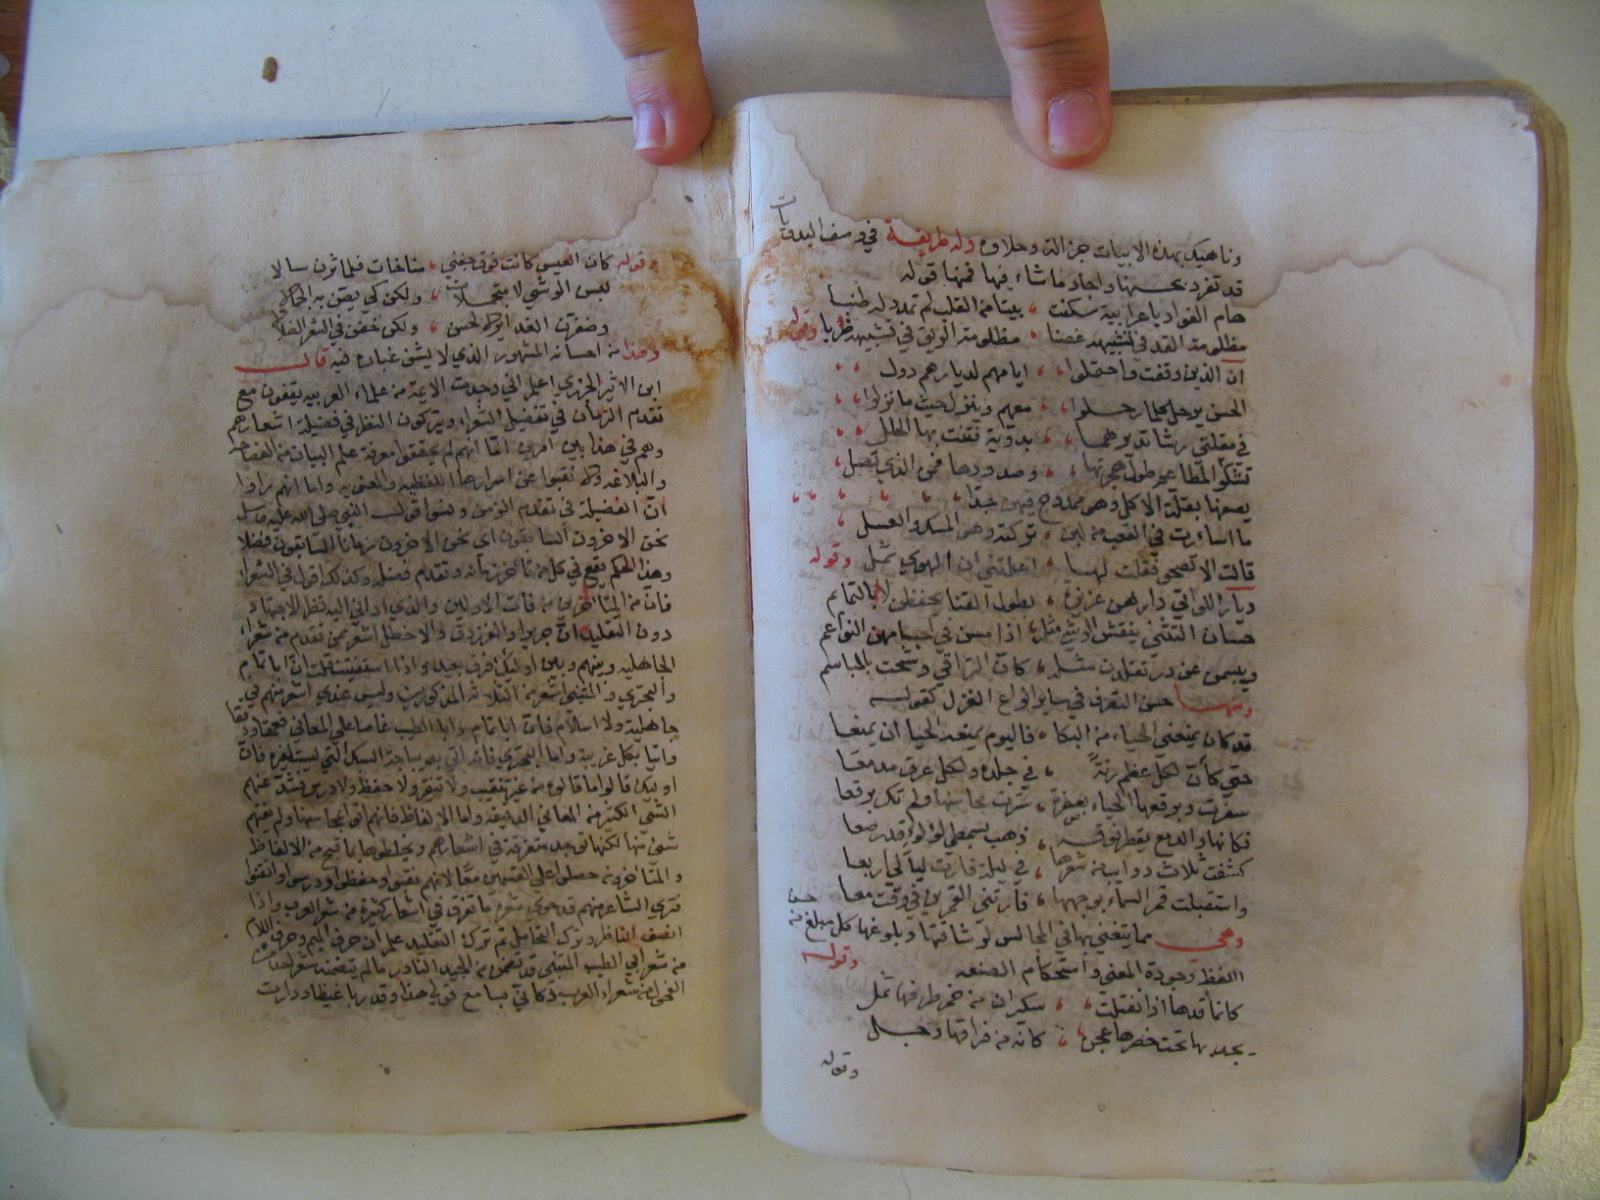 وناهيك بهذه الابيات جزالة وحلاوة وله طريقة في وصف البدويات
قد تفرد بحسنها واجاد ما شاء فيها فمنها قوله
هام الفواد باعرابية سكنت بيتا من القلب لم تمدد له طنبا
مظلومة القد في تشبيهه غصنا مظلومة الريق في تشبيهه ضربا وقوله
ان الذين وقفت واحتملوا ايامهم لديارهم دول
الحسن يرحل كلما رحلوا معهم وينزل حيث ما نزلوا
في مقلتي رشا تديرهما بدوية فتنت بها الحلل
تشكو المطاعم طول هجرتها وصدودها فمن الذي تصل
يصفها بقلة الاكل وهي ممدوح فيهن جدا
ما اسأرت في القعب من لبن تركته وهو المسك والعسل
قالت الا تصحو فقلت لها اعلمتني ان الهوى ثمل وقوله
ديار اللواتي دارهن عزيزة بطول القنا يحفظن لا بالتمايم
حسان التثني ينقش الوشي مثله اذا مسن في اجسامهن النواعم
ويبسمن عن در تقلدن مثله كان التراقي وشحت بالمباسم
ومنها حسن التصرف في ساير انواع الغزل كقوله
قد كان يمنعني الحياء من البكاء فاليوم يمنعه الحيا ان يمنعا
حتى كأن لكل عظم رنة في جلده ولكل عرق مدمعا
سفرت وبرقعها الحياء بصفرة سترت محاسنها ولم تك برقعا
فكانها والدمع يقطر فوقها ذهب بسمطي لؤلؤ قد رصعا
كشفت ثلاث ذوايب من شعرها في ليلة فارت ليالي اربعا
واستقبلت قمر السماء بوجهها فارتني القمرين في وقت معا
وهي مما يتغنى بها في المجالس لرشاقتها وبلوغها كل مبلغ من حسن
اللفظ وجودة المعنى واستحكام الصنعه وقوله
كانما قدها اذا انفتلت سكران من خمر طرفها ثمل
يجذبها تحت خصرها عجز كانه من فراقها وجل
وقوله
وقوله كان العيس كانت فوق جفني مناخات فلما ثرن سالا
لبسن الوشي لا متجملات ولكن كي يصن به الجمالا
وضفرن الغداير لا لحسن ولكن خفن في الشعر الضلالا
وهذا من احسانه المشهور الذي لا يشق غباره فيه قال
ابن الاثير الجزري اعلم اني وجدت الايمة من علماء العربيه يقفون مع
تقدم الزمان في تفضيل الشعراء ويتركون النظر في فضيلة اشعارهم
وهم في هذا بين امرين اما انهم لم يحققوا معرفة علم البيان من الفصاحه
والبلاغه ولا نقبوا عن اسرارهما اللفظيه والمعنويه واما انهم راوا
ان الفضيلة في تقدم الزمن ونسوا قول النبي صلى الله عليه وسلم
نحن الاخرون السابقون اي نحن الاخرون زمانا السابقون فضلا
وهذا الحكم يقع في كل من تاخر زمانه وتقدم فضله وكذلك اقول في الشعراء
فان من المتاخرين من فات الاولين والذي اداني اليه نظر الاجتهاد
دون التقليد ان جريرا والفرزدق والاخطل اشعر ممن تقدم من شعراء
الجاهليه وبينهم وبين اوليك فرق بعيد واذا استفتيت قلت ان ابا تمام
والبحتري والمتنبي اشعر من الثلاثه المذكورين وليس عندي اشعر منهم في
جاهلية ولا اسلام فان ابا تمام وابا الطيب غاصا على المعاني فعمقا ودققا
واتيا بكل غريبة واما البحتري فانه اتى بديباجة السبك التي ليست لغيره فان
اوليك قالوا ما قالوه من غير تنقيب ولا تنقير ولا حفظ ولا درس فشذ عنهم
الشي الكثير من المعاني الدقيقه واما الالفاظ فانهم اتوا بمحاسنها ولم يفتهم
شيء منها لكنها توجد متفرقة في اشعارهم ويخلطوها بما قبح من الالفاظ
والمتاخرون حصلوا على القسمين معا لانهم نقبوا وحفظوا ودرسوا واتقنوا
فترى الشاعر منهم قد حوى شعره ما تفرق في اشعار كثيرة من شعر العرب واذا
انصف الناظر وترك التحامل ثم ترك التقليد علم ان حرف الميم وحرف اللام
من شعر ابي الطيب المتنبي قد تضمن من الجيد النادر ما لم يتضمنه شعر احد
الفحول من شعراء العرب وكاني بسامع قولي هذا وقد ربا غيظا ودارت